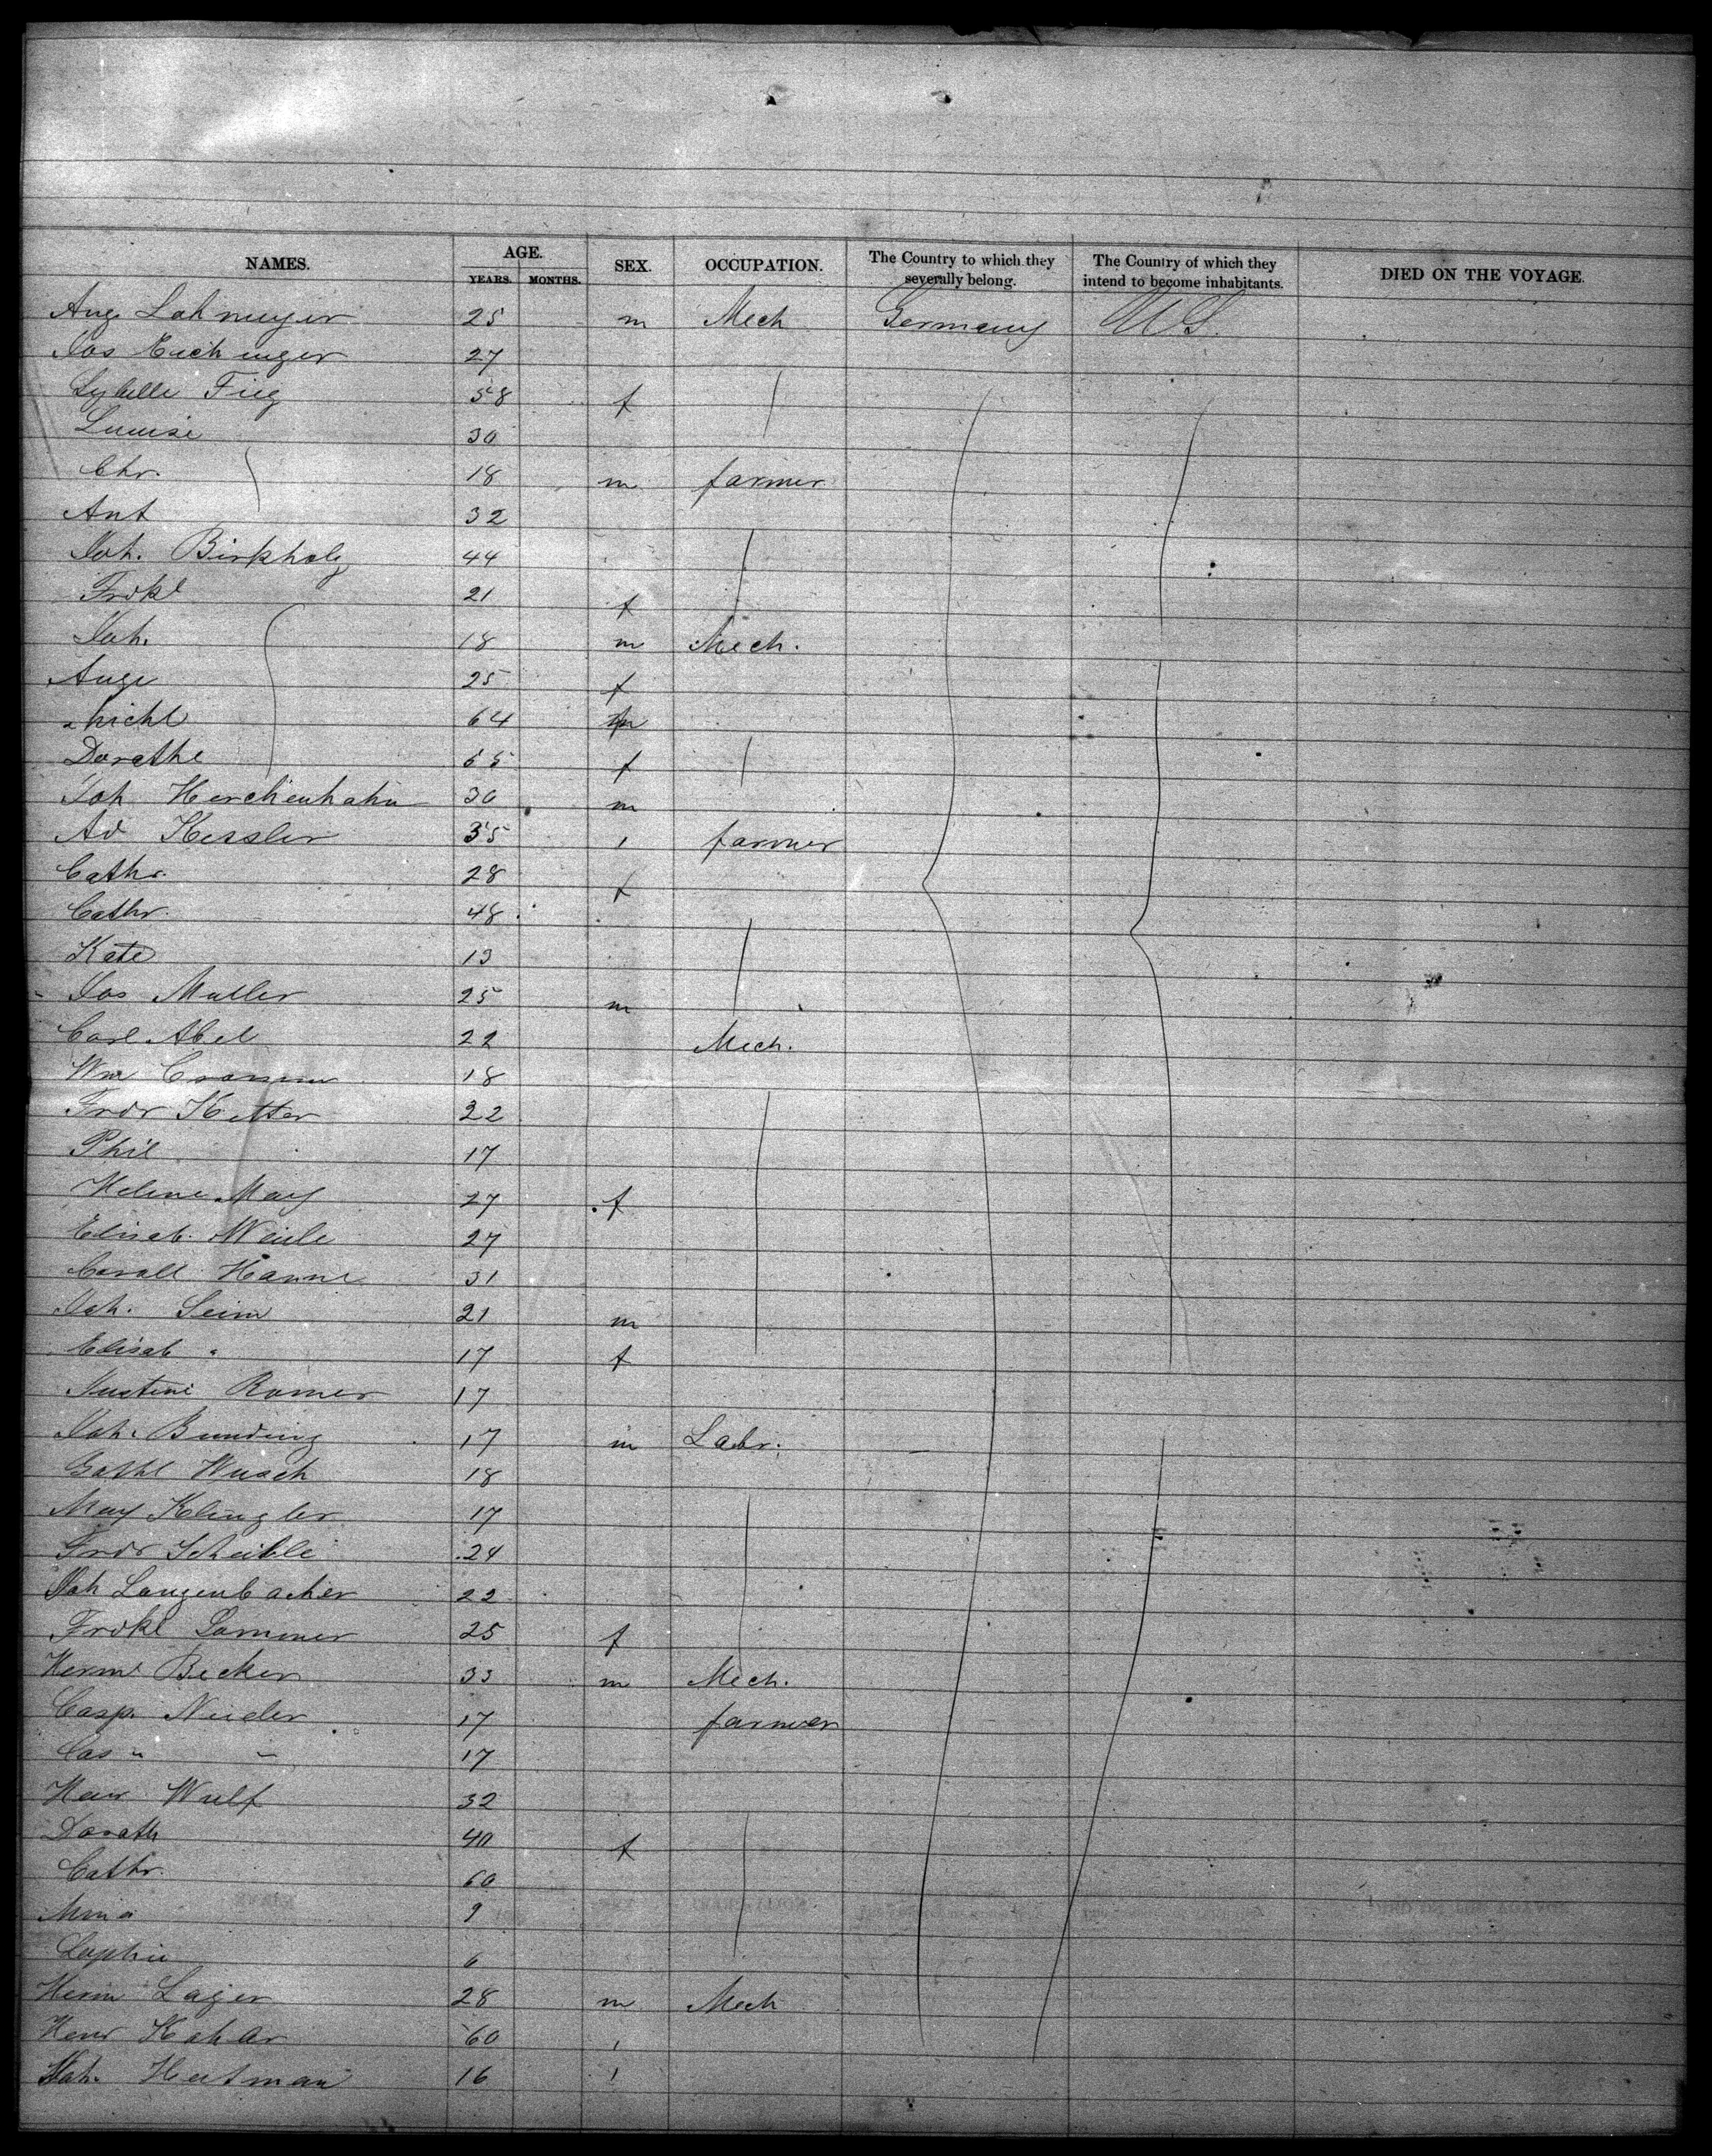 NAMES. AGE. YEARS. MONTHS. SEX. OCCUPATION. The Country to which they severally belong. The Country of which they intend to become inhabitants. DIED ON THE VOYAGE.
Aug Lahmeyer 25 m Mech Germany U S.
Jos Eichinger 27
Sybille Fieg 58 f
Louise 30
Chr. 18 m farmer
Ant 32
Joh. Birkholz 44
Frdke 21 f
Joh. 18 m Mech.
Auge 25 f
Michl 64 m
Dorothe 65 f
Joh Herchenhahn 30 m
Ad Kessler 35 farmer
Cathr. 28 f
Cathr. 48
Kate 13
Jos Muller 25 m
Carl Abel 22 Mech.
Wm Cramm 18
Frdr Ketter 22
Phil 17
Helene May 27 f
Elisab. Weule 27
Hanne 31
Joh. Seim 21 m
Elisab " 17 f
Justine Romer 17
Joh. Bunding 17 m Labr.
Gotthl Wusch 18
Max Klingler 17
Frdr Scheible 24
Joh Langenbacher 22
Frdke Sommer 25 f
Herm Becker 33 m Mech.
Casp. Neider 17 farmer
Cas " " 17
Heinr Wulf 32
Doroth 40 f
Cathr. 60
Mina 9
Sophie 6
Herm Lager 28 m Mech
Henr 60
Joh. Hutmann 16